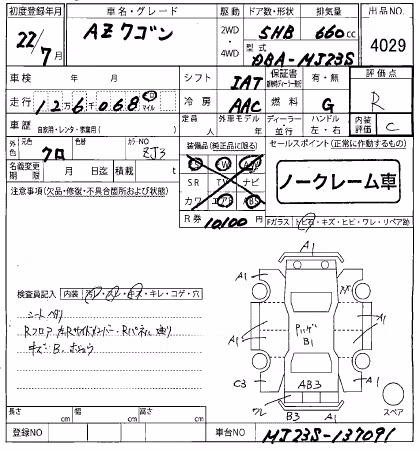 初度登録年月 車名・グレード 駆動 ドア数・形状 排気量 出品NO.
22/7月 AZワゴン 2WD・4WD 5HB 660cc 4029
型式 DBA-MJ23S
車検 年 月 シフト IAT 保証書 有・無 評価点
走行 126,068 km マイル 冷房 AAC 燃料 G R
車歴 自家用・レンタ・事業用( ) 定員 人 外車モデル 年 ディーラー 並行 ハンドル 左・右 内装評価 C
外色 元色 クロ 色替 カラーNO ZJ3 装備品(純正品に限る) セールスポイント(正常に作動するもの)
名義変更期限 月 日迄 積載 t SR TV ナビ ノークレーム車
注意事項(欠品・修復・不具合箇所および状態) カワ エアB ABS
R券 10,100円 Fガラス トビ石・キズ・ヒビ・ワレ・リペア跡
A1
A1
検査員記入 内装 汚レ・スレ・キズ・キレ・コゲ・穴
シートヘタリ
A1 A1
B1
C3 A1
AB3
ワレ B3 A1 スペア
長さ cm 幅 cm 高さ cm
登録NO 車台NO MJ23S-137091